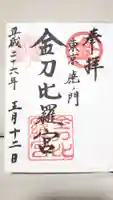 奉拝
東京虎ノ門
金刀比羅宮
平成二十六年 五月十二日